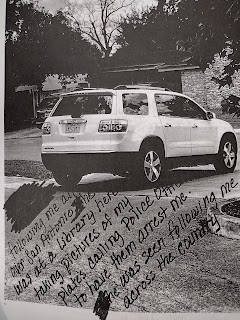 following me all
over San Antonio. She
was at a library here
taking pictures of my
plates calling Police Dept
to have them arrest me-
was seen following me
across the country